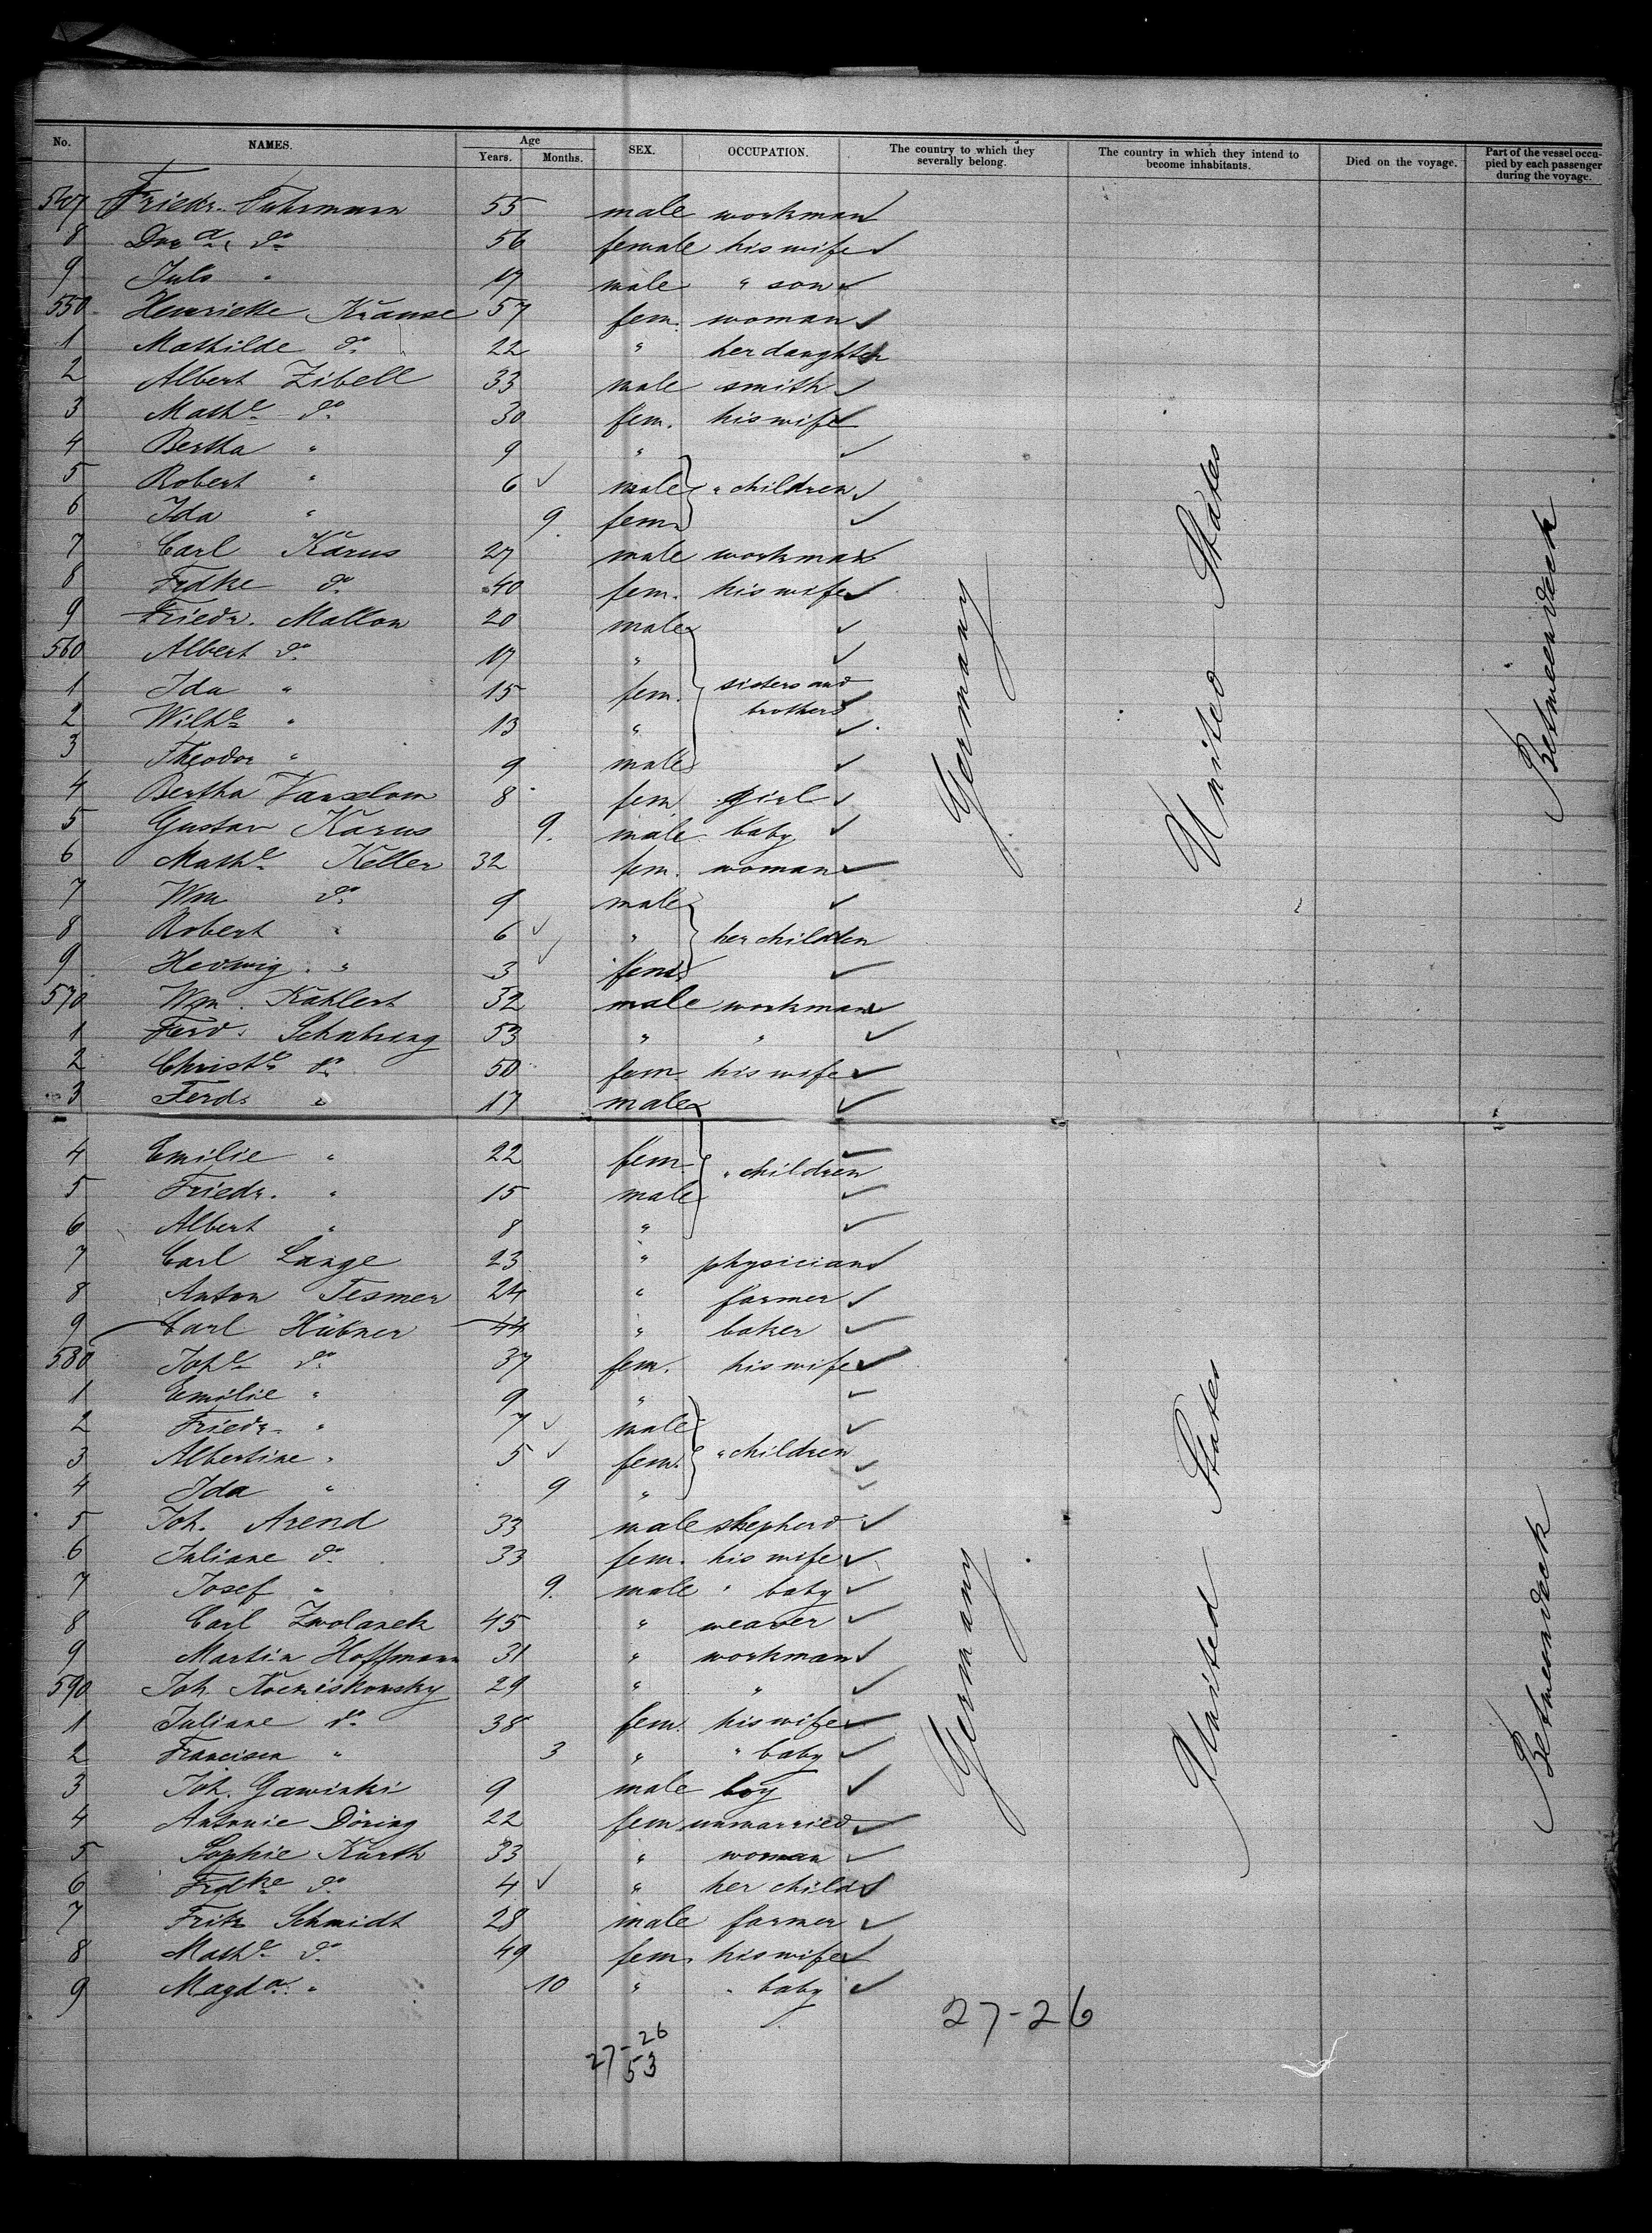 No. NAMES. Age Years. Months. SEX. OCCUPATION. The country to which they severally belong. The country in which they intend to become inhabitants. Died on the voyage. Part of the vessel occupied by each passenger during the voyage.
547 Friedr. Fuhrmann 55 male workman
8 do 56 female his wife
9 Juls " 17 male " son
550 Henriette Krause 57 fem. woman
1 Mathilde do 22 " her daughter
2 Albert Zibell 33 male smith
3 Mathe do 30 fem. his wife
4 Bertha " 9 "
5 Robert " 6 male " children
6 Ida " 9. fem.
7 Carl Karus 27 male workman
8 Frdke do 40 fem. his wife
9 Friedr. Mallon 20 male
560 Albert do 17 "
1 Ida " 15 fem. sisters and
2 Wilhe " 13 " brothers
3 Theodor " 9 male
4 Bertha Vanselow 8 fem girl
5 Gustav Karus 9. male baby
6 Mathe Keller 32 fem. woman
7 Wm do 9 male
8 Robert " 6 " her children
9 Hedwig " 3 fem.
570 Wm. Kahlert 32 male workman
1 Ferd. Schubring 53 " "
2 Christe do 50 fem. his wife
3 Ferd. " 17 male
4 Emilie " 22 fem. " children
5 Friedr. " 15 male
6 Albert " 8 "
7 Carl Lange 23 " physician
8 Anton Tesmer 24 " farmer
9 Carl Hübner 44 " baker
580 Johe do 37 fem. his wife
1 Emilie " 9 "
2 Friedr. " 7 male
3 Albertine " 5 fem. " children
4 Ida " 9 "
5 Joh. Arend 33 male shepherd
6 Juliane do 33 fem. his wife
7 Josef " 9. male " baby
8 Carl Zwolanek 45 " weaver
9 Martin Hoffmann 31 " workman
590 Joh. 29 " "
1 Juliane do 38 fem. his wife
2 Francisca " 3 " " baby
3 Joh. Gawinki 9 male boy
4 Antonie Döring 22 fem unmarried
5 Sophie Kurth 33 " woman
6 Frdke do 4 " her child
7 Fritz Schmidt 28 male farmer
8 Mathe do 49 fem. his wife
9 Magda. " 10 " " baby
Germany United States Betweendeck
Germany United States Betweendeck
27-26
27-26
53